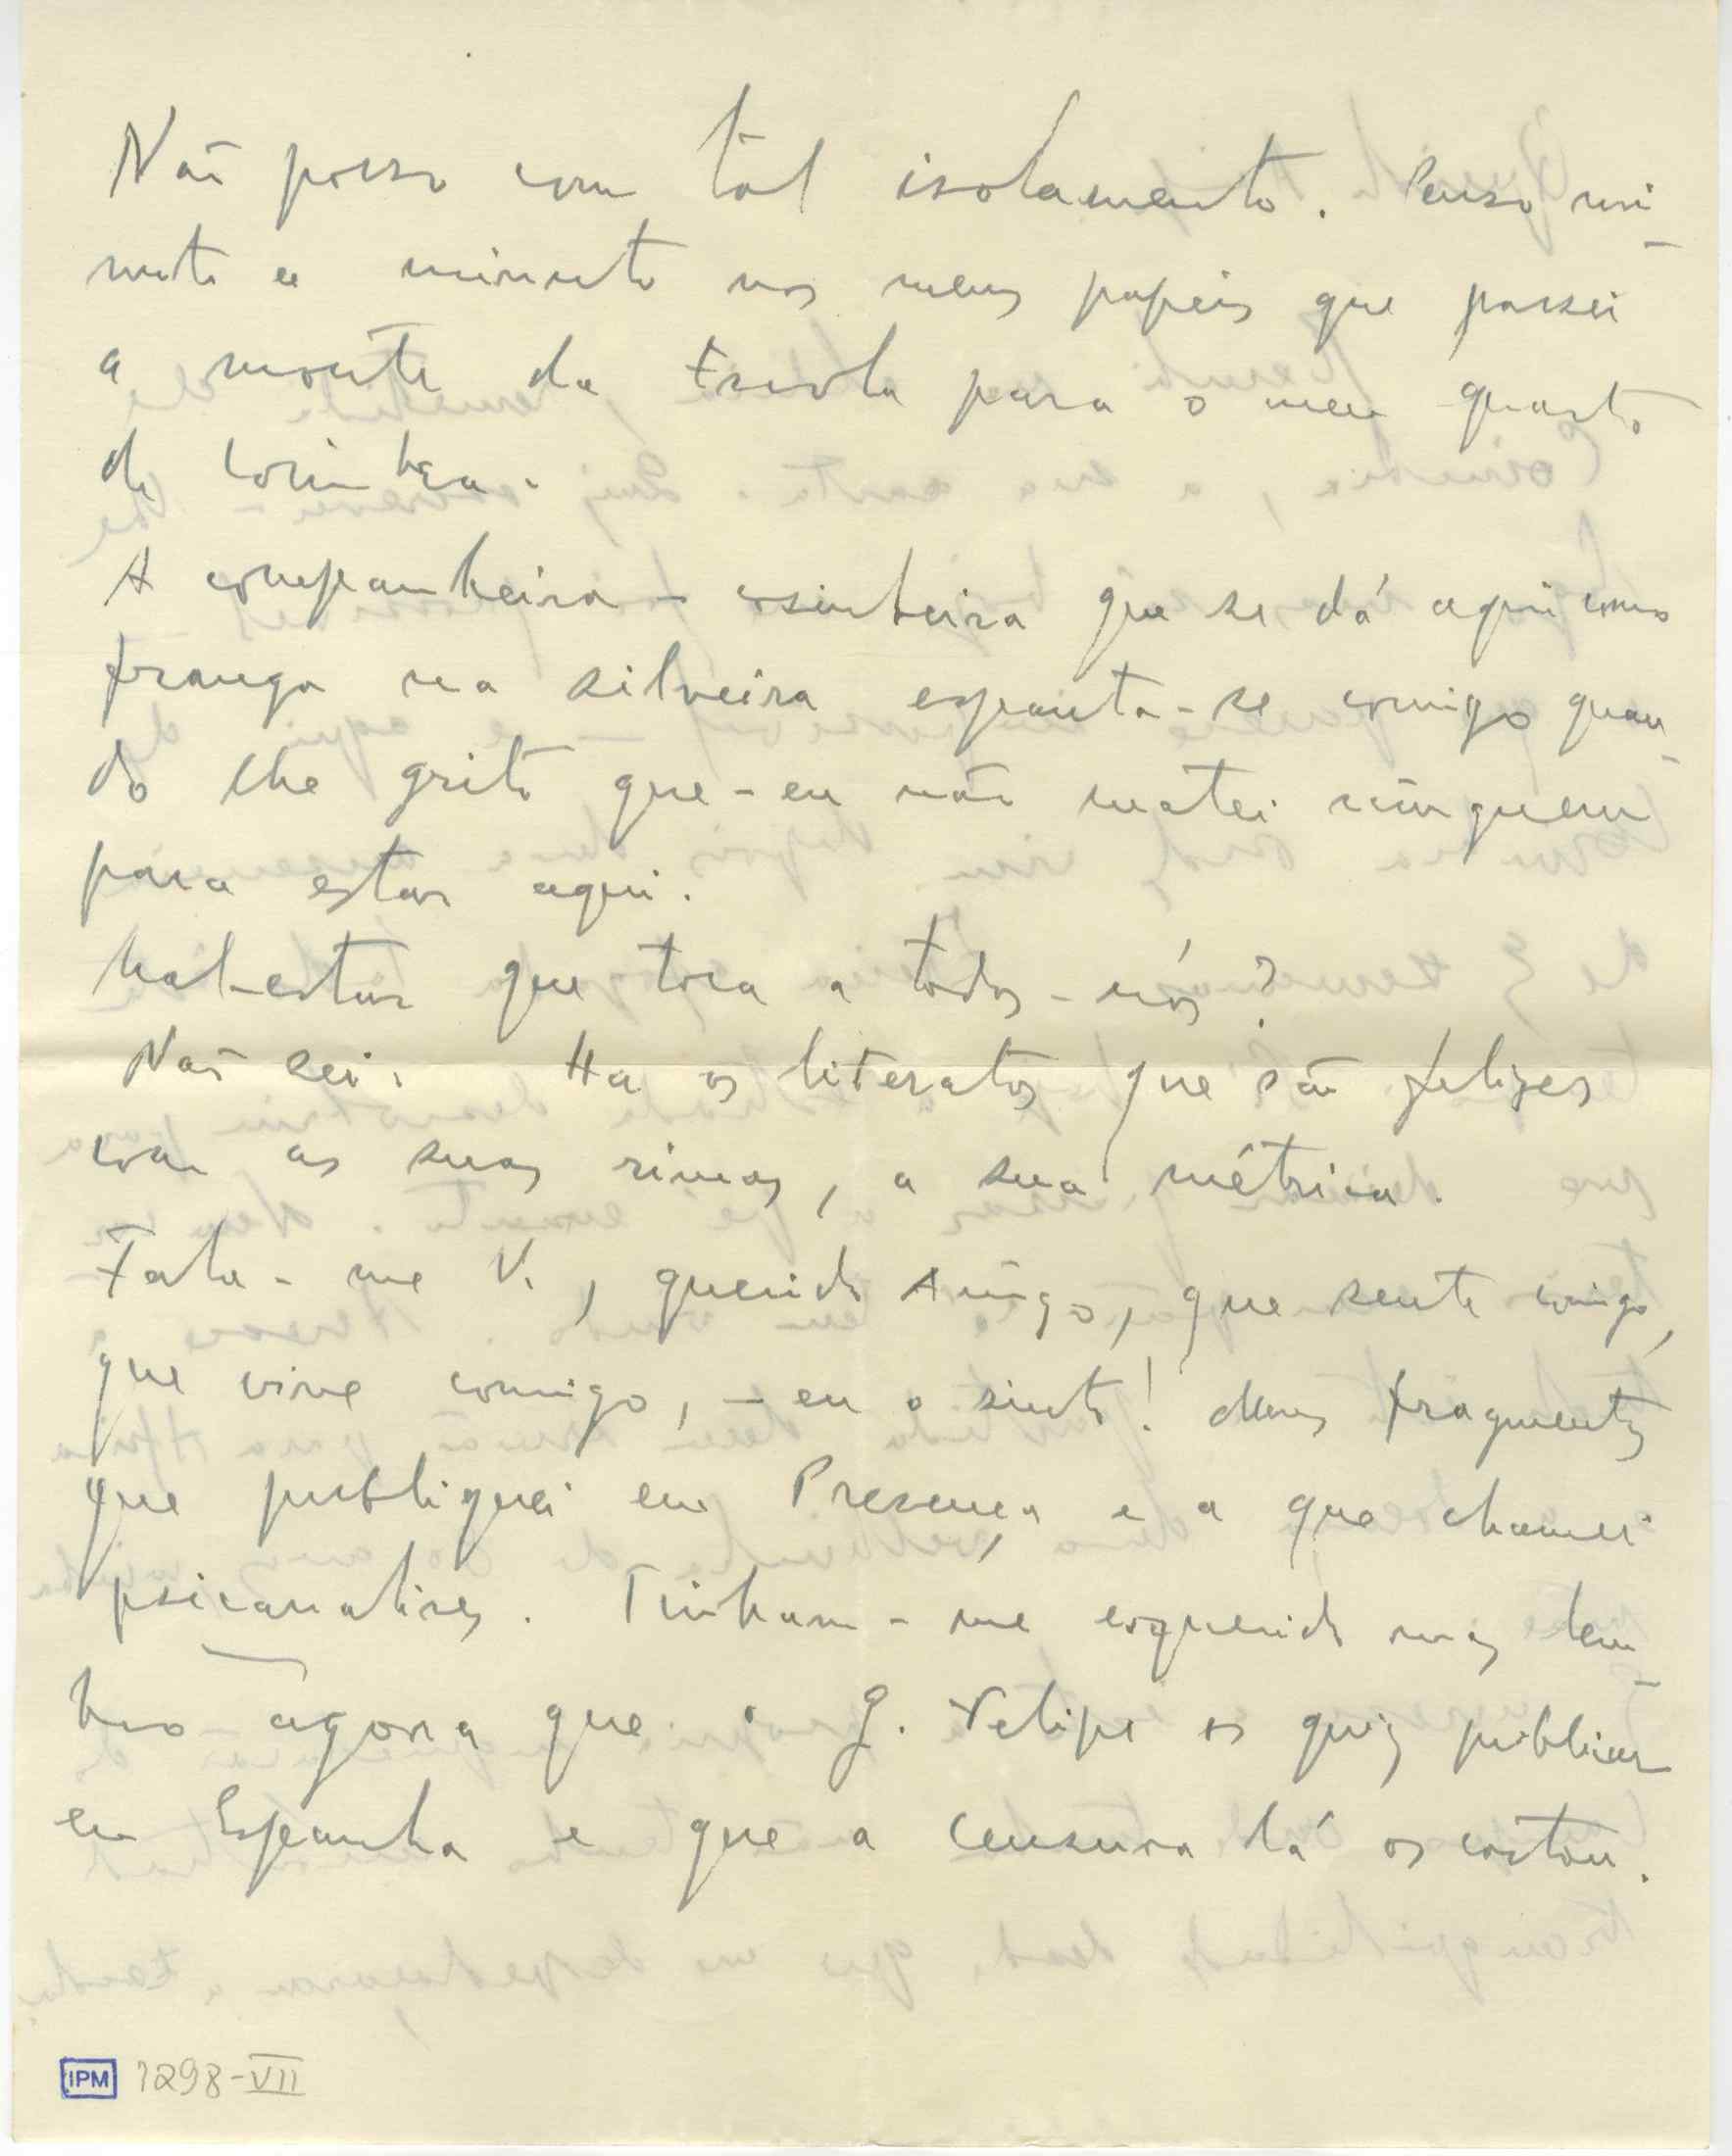 Não posso com tal isolamento. Penso mi-
nuto a minuto nos meus papeis que passei
a monte da Escola para o meu quarto
de Coimbra.
A companheira - cosinheira que se dá aqui como
franga na silveira espanta-se comigo quan-
do lhe grito que - eu não matei ninguem
para estar aqui.
Mal-estar que toca a todos - nós?
Não sei. Ha os literatos que são felizes
com as suas rimas, a sua métrica.
Fale-me V., querido Amigo, que sente comigo,
que vive comigo, - eu o sinto! Meus fragmentos
que publiquei em Presença e a que chamei
psicanalises. Tinham-me esquecido mas lem-
bro agora que o G. Felipe os quiz publicar
em Espanha e que a censura lá os cortou.
IPM 1298-VII